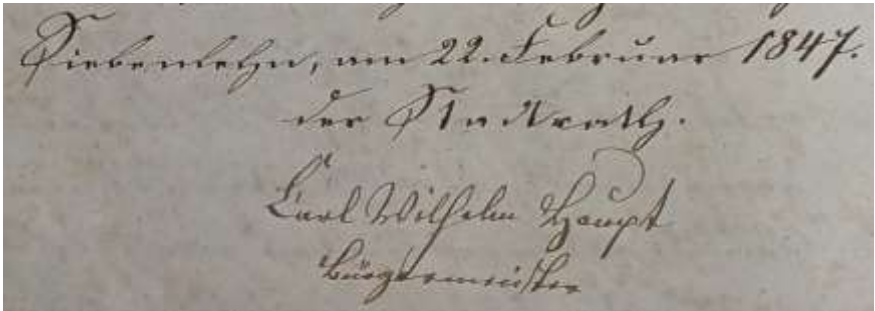 Siebenlehn, am 22. Februar 1847.
der Stadtrath.
Carl Wilhelm Haupt
Bürgermeister